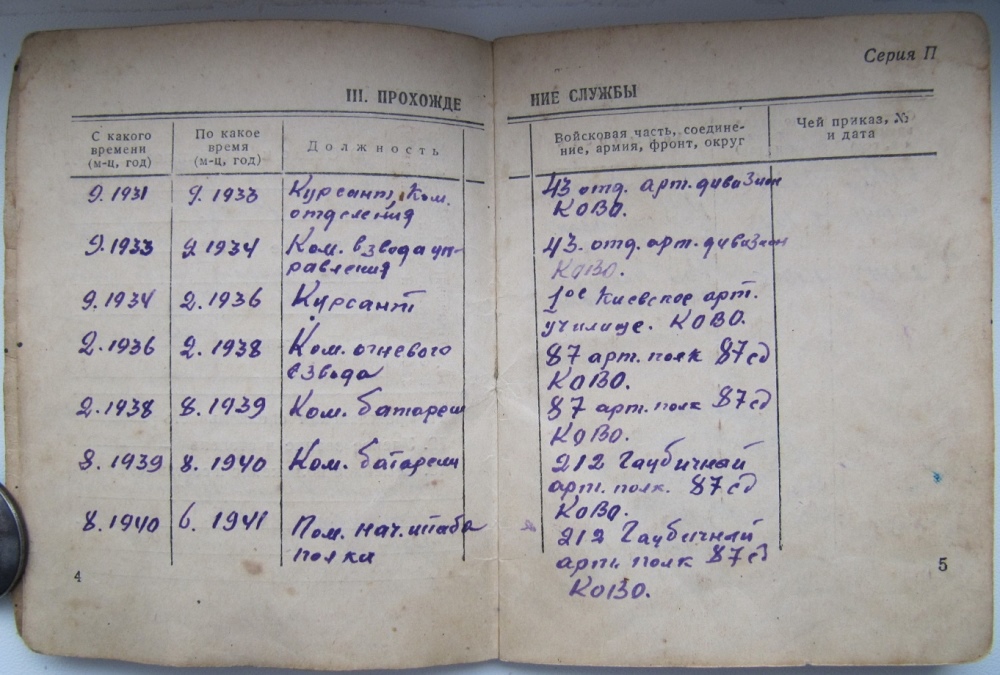 Серия П
III. ПРОХОЖДЕ
НИЕ СЛУЖБЫ
С какого времени (м-ц, год)
По какое время (м-ц, год)
Должность
Войсковая часть, соедине-
ние, армия, фронт, округ
Чей приказ, №
и дата
9.1931 9.1933 Курсант, Ком.
отделения
43 отд. арт. дивизион
КОВО.
9.1933 9.1934 Ком. взвода уп-
равления
43. отд. арт. дивизион
КОВО.
9.1934 2.1936 Курсант
1ое Киевское арт.
училище. КОВО.
2.1936 2.1938 Ком. огневого
взвода
87 арт. полк 87сд
КОВО.
2.1938 8.1939 Ком. батареи
87 арт. полк 87сд
КОВО.
8.1939 8.1940 Ком. батареи
212 Гаубичный
арт. полк. 87сд
КОВО.
8.1940 6.1941 Пом. нач. штаба
полка
212 Гаубичный
арт. полк 87сд
КОВО.
4
5